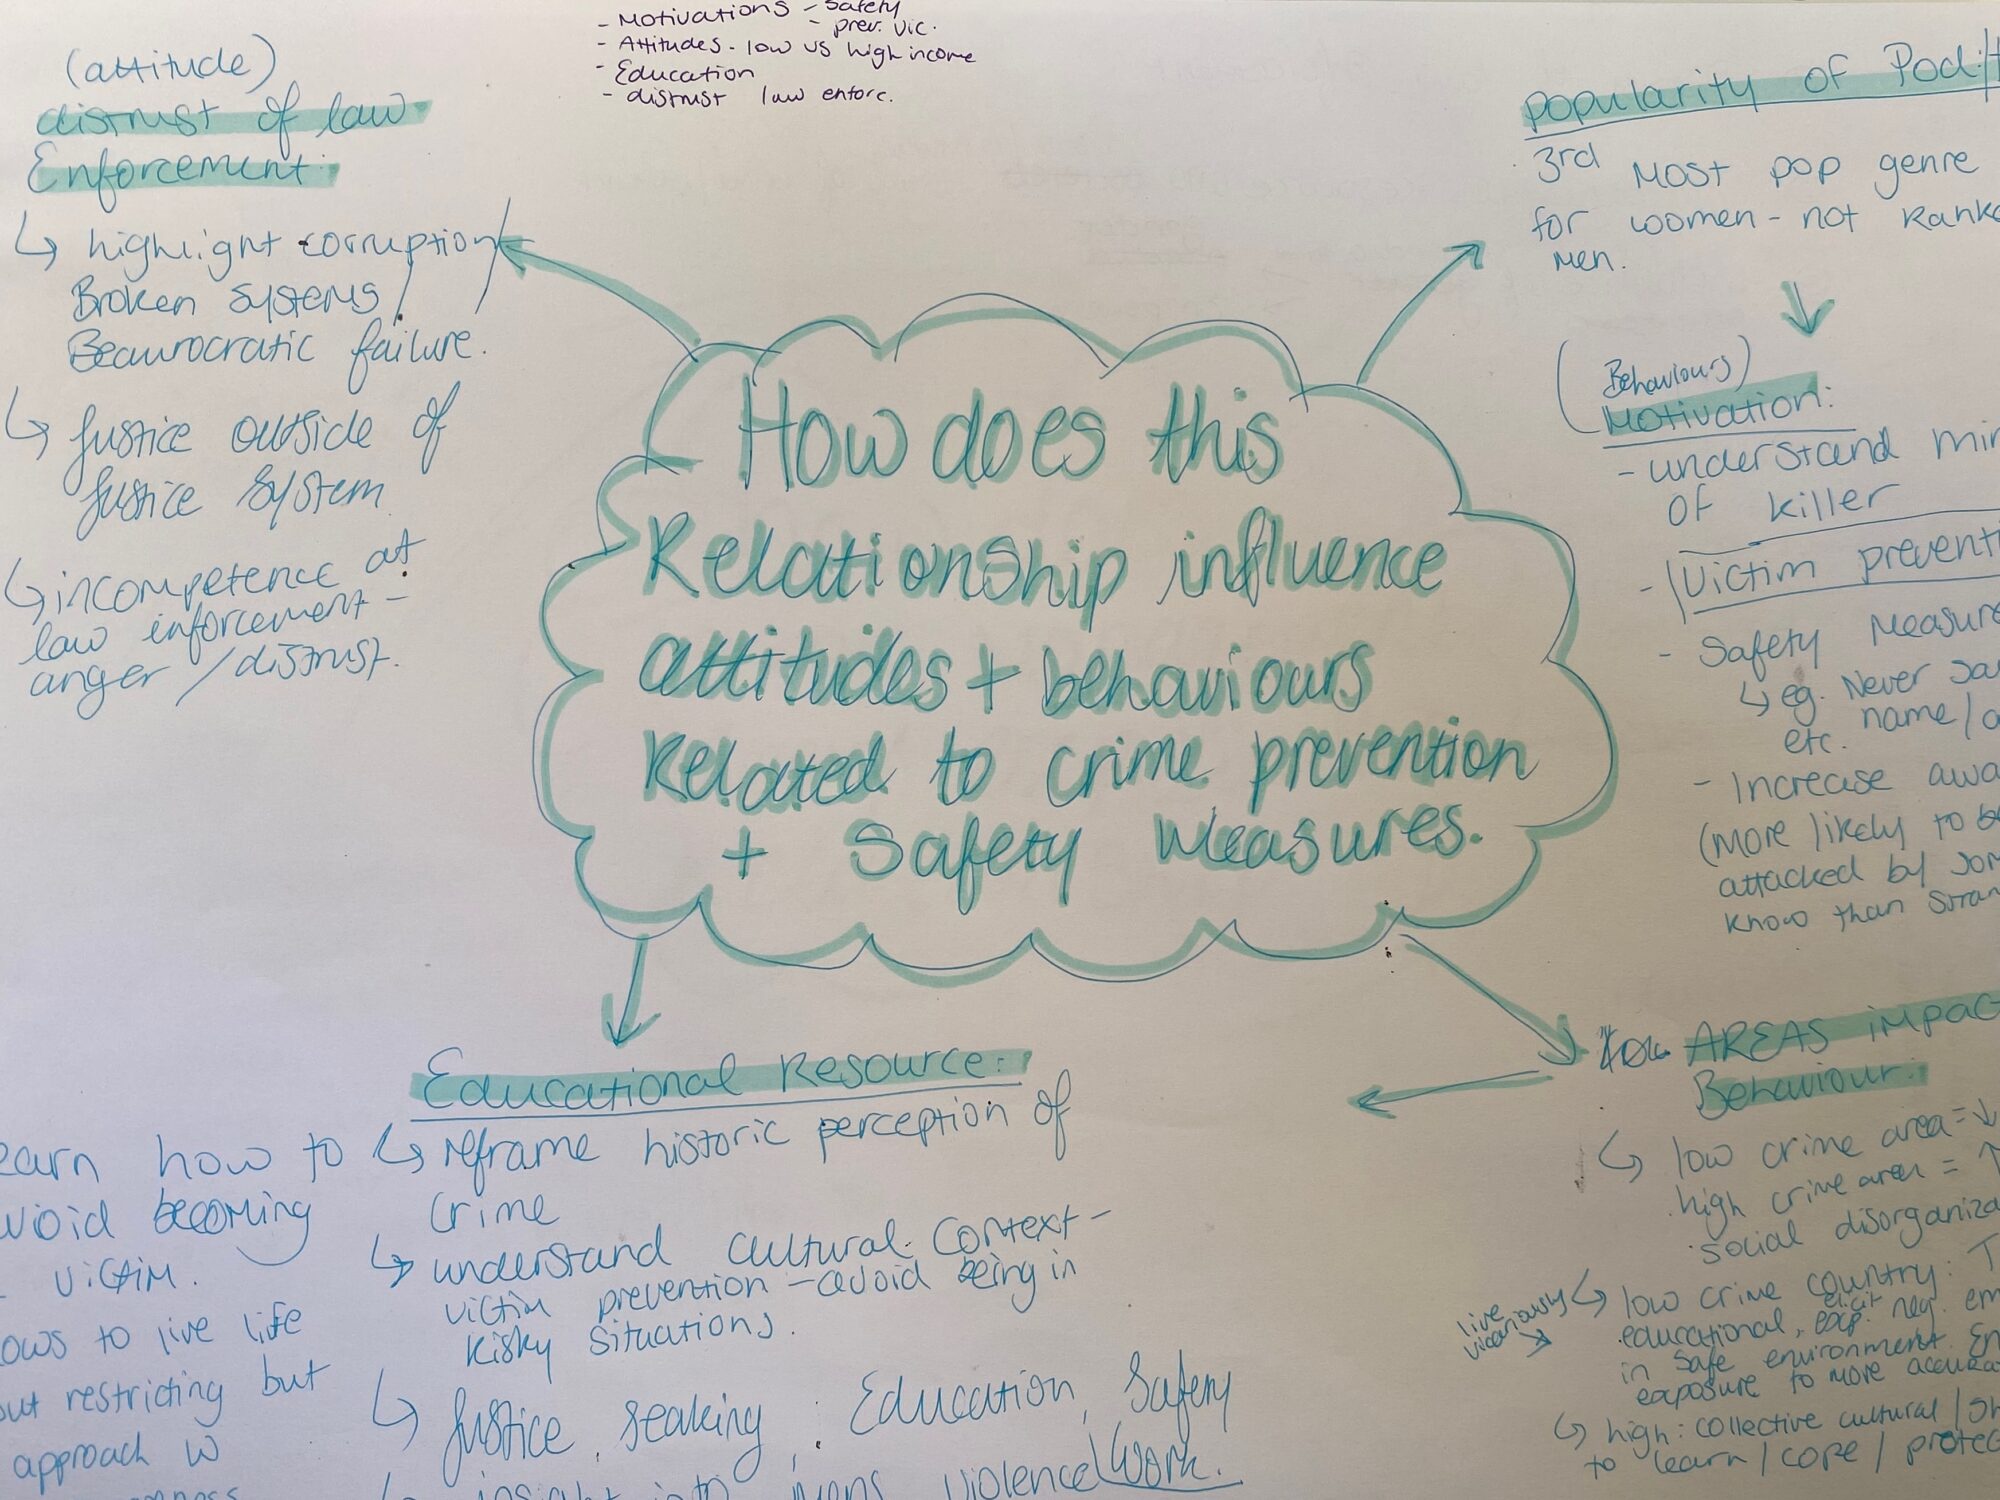 - Motivations - Safety
- prev. vic.
- Attitudes - low vs high income
- Education
- distrust law enforc.
(attitude)
distrust of law
Enforcement:
↳ highlight corruption/
Broken Systems/
Beaurocratic failure.
↳ Justice outside of
Justice System
↳ incompetence at
law enforcement -
anger / distrust.
popularity of Pod
3rd Most pop genre
for women - not Ranke
men.
(Behaviours)
Motivation:
- understand min
of killer
- Victim preventi
- Safety Measure
↳ eg. Never
etc. name/a
- Increase awa
(more likely to be
attacked by som
know than stran
How does this
Relationship influence
attitudes + behaviours
Related to crime prevention
+ Safety Measures.
Educational Resource:
↳ reframe historic perception of
crime
↳ understand cultural context -
victim prevention - avoid being in
Risky Situations.
↳ Justice, seaking, Education, Safety
Work.
insight into mens violence
earn how to
void becoming
victim.
ows to live life
out restricting but
approach w
AREAS impac
Behaviour:
↳ low crime area = ↓
high crime area = ↑
social disorganiza
live
vicariously
↳ low crime country: T
educational, elicit neg. em
in safe environment. En
exposure to more accura
↳ high: collective cultural / Sh
to learn / cope / protec